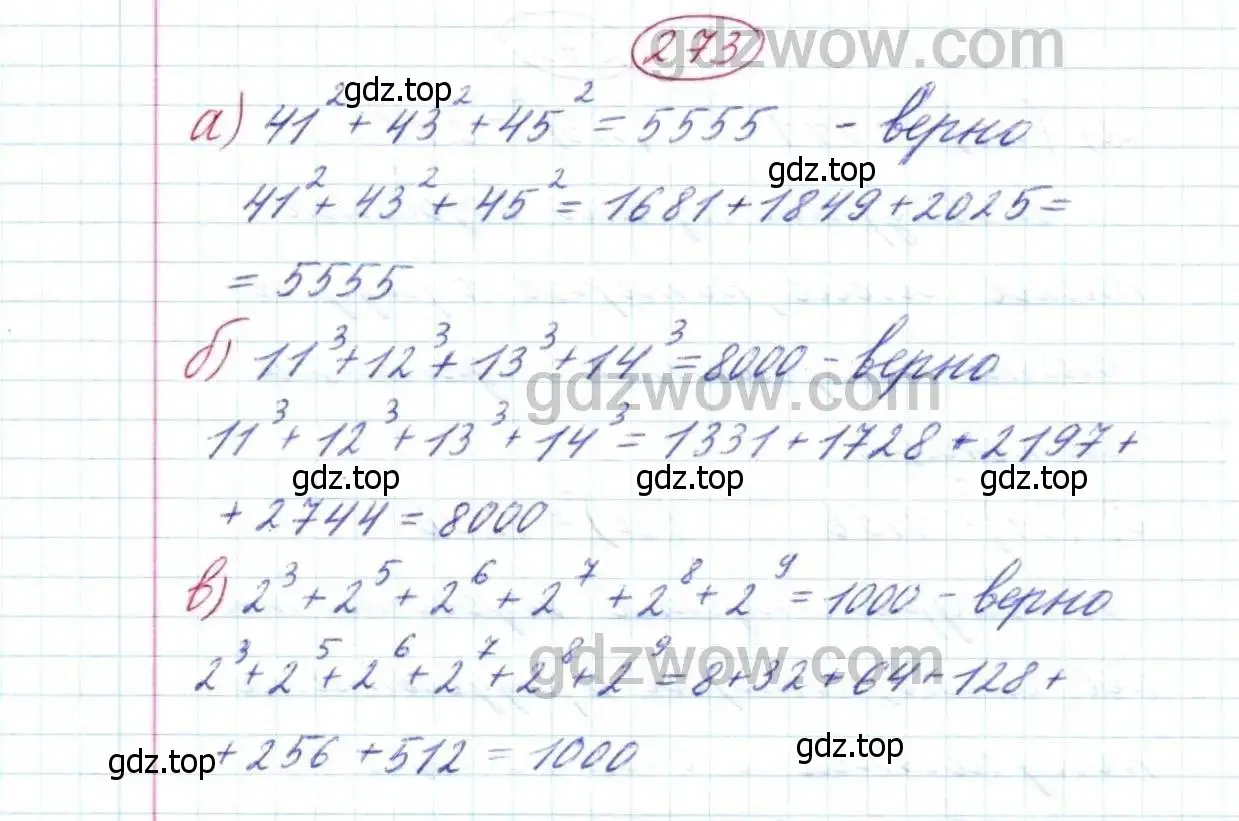 273
gdzwow.com
gdz.top
а) 41² + 43² + 45² = 5555 - верно
gdz.top
41² + 43² + 45² = 1681 + 1849 + 2025 =
= 5555
б) 11³ + 12³ + 13³ + 14³ = 8000 - верно
gdzwow.com
11³ + 12³ + 13³ + 14³ = 1331 + 1728 + 2197 +
gdz.top gdz.top gdz.top
+ 2744 = 8000
в) 2³ + 2⁵ + 2⁶ + 2⁷ + 2⁸ + 2⁹ = 1000 - верно
gdzwow.com
2³ + 2⁵ + 2⁶ + 2⁷ + 2⁸ + 2⁹ = 8 + 32 + 64 + 128 +
gdz.top gdz.top
+ 256 + 512 = 1000